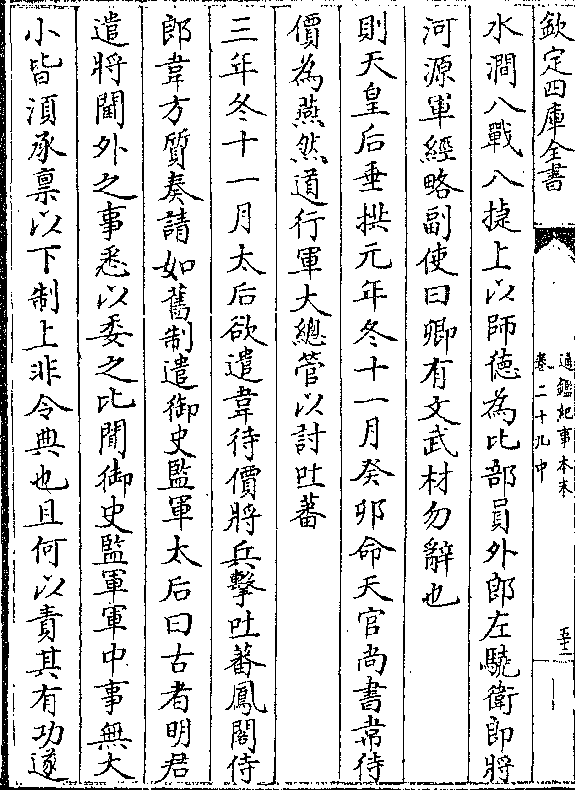 欽定四庫全書
通鑑紀事本末
卷二十九中
水澗八戰八捷上以師德為比部員外郎左驍衛郎將
河源軍經略副使曰卿有文武材勿辭也
則天皇后垂拱元年冬十一月癸卯命天官尚書韋待
價為燕然道行軍大總管以討吐蕃
三年冬十一月太后欲遣韋待價將兵擊吐蕃鳳閣侍
郎韋方質奏請如舊制遣御史監軍太后曰古者明君
遣將閫外之事悉以委之比聞御史監軍軍中事無大
小皆湏承稟以下制上非令典也且何以責其有功遂